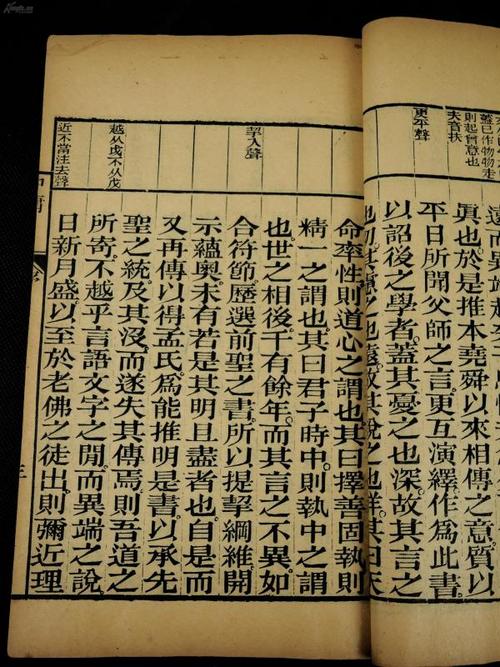 蓋已作物物走
則起曾意也
夫音扶
更平聲
遠而異端起
眞也於是推本堯舜以來相傳之意質以
平日所聞父師之言更互演繹作爲此書
以詔後之學者蓋其憂之也深故其言之
也切其慮之也遠故其說之也詳其曰天
挈入聲
越从戉不从戊
近不當注去聲
命率性則道心之謂也其曰擇善固執則
精一之謂也其曰君子時中則執中之謂
也世之相後千有餘年而其言之不異如
合符節歷選前聖之書所以提挈綱維開
示蘊奧未有若是其明且盡者也自是而
又再傳以得孟氏爲能推明是書以承先
聖之統及其沒而遂失其傳焉則吾道之
所寄不越乎言語文字之閒而異端之說
日新月盛以至於老佛之徒出則彌近理